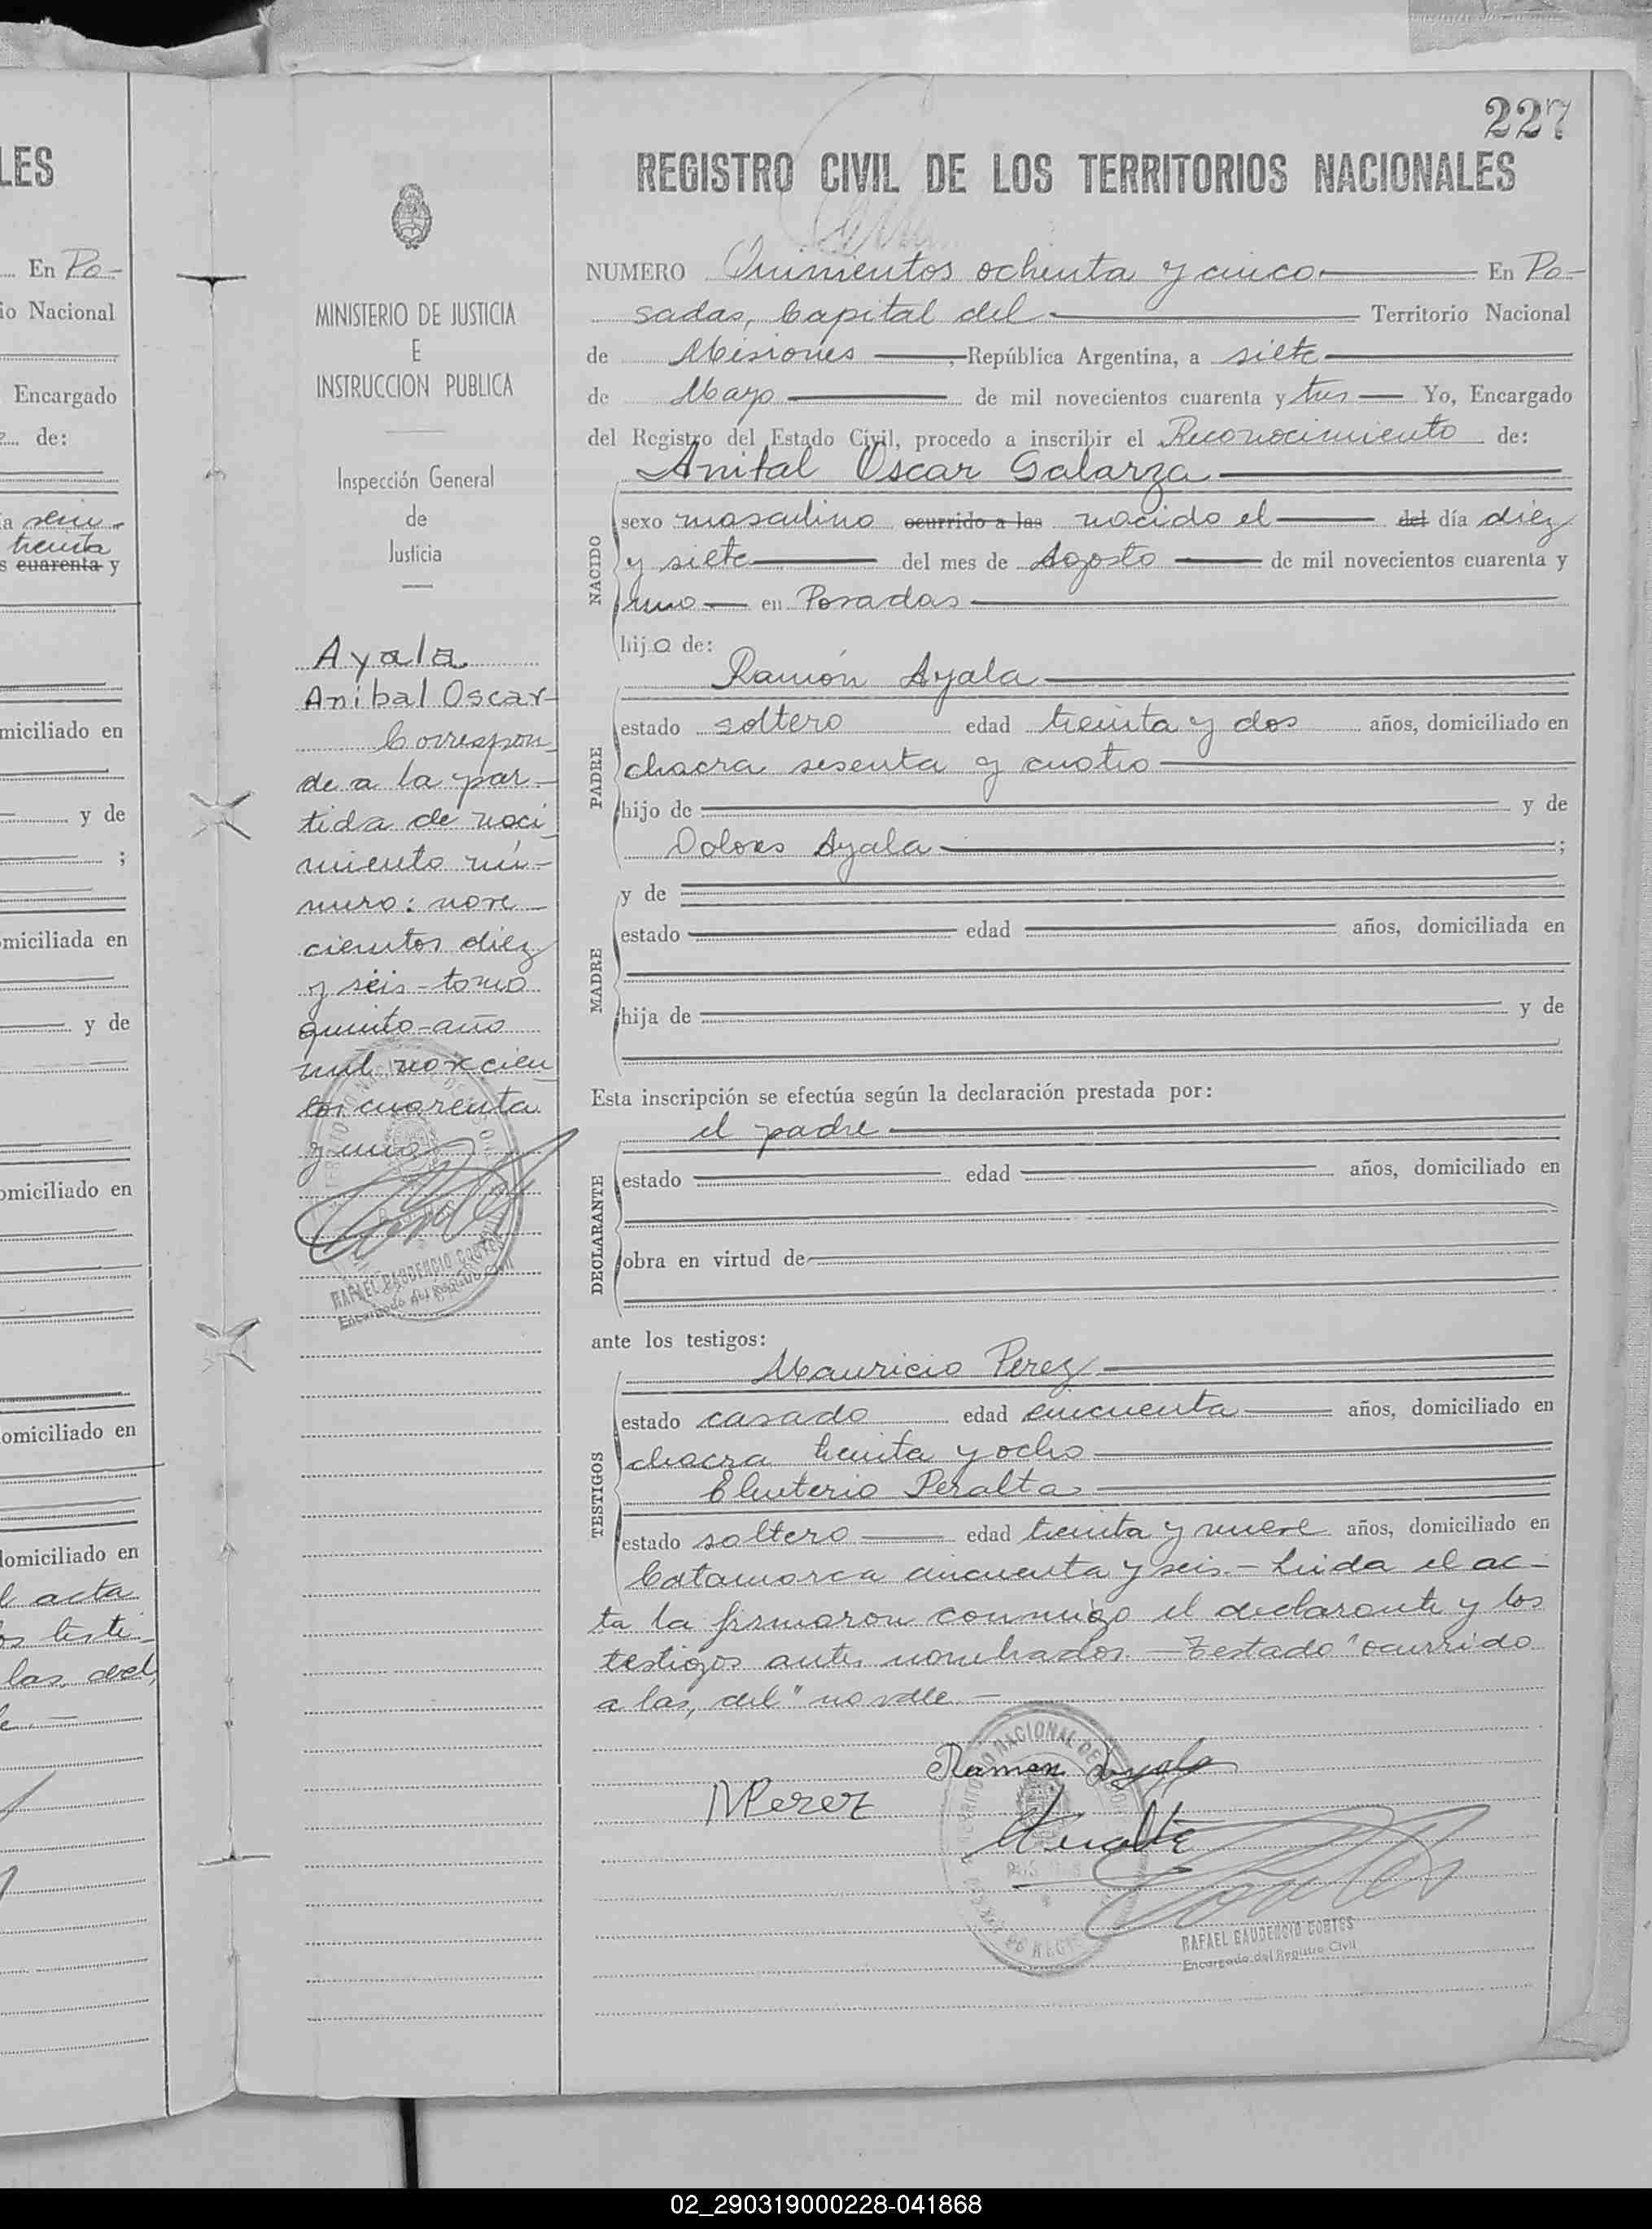 LES
En Po-
io Nacional
Encargado
de:
treinta
s cuarenta y
miciliado en
y de
;
omiciliada en
y de
omiciliado en
omiciliado en
domiciliado en
l acta
os testi-
las, del,
MINISTERIO DE JUSTICIA
E
INSTRUCCION PUBLICA
Inspección General
de
Justicia
Ayala
Anibal Oscar-
Correspon-
de a la par-
tida de naci-
miento nú-
mero: nove-
cientos diez
y seis-tomo
quinto-año
mil novecien
tos cuarenta
y uno
RAFAEL GAUDENCIO CORTES
Encargado del Registro Civil
227
REGISTRO CIVIL DE LOS TERRITORIOS NACIONALES
NUMERO Quinientos ochenta y cinco En Po-
sadas, Capital del Territorio Nacional
de Misiones, República Argentina, a siete
de Mayo de mil novecientos cuarenta y tres Yo, Encargado
del Registro del Estado Civil, procedo a inscribir el Reconocimiento de:
Anibal Oscar Galarza
NACIDO
sexo masculino ocurrido a las nacido el del día diez
y siete del mes de Agosto de mil novecientos cuarenta y
uno en Posadas
hijo de:
Ramón Ayala
PADRE
estado soltero edad treinta y dos años, domiciliado en
chacra sesenta y cuatro
hijo de y de
Dolores Ayala ;
y de
MADRE
estado edad años, domiciliada en
hija de y de
Esta inscripción se efectúa según la declaración prestada por:
el padre
DECLARANTE
estado edad años, domiciliado en
obra en virtud de
ante los testigos:
Mauricio Perez
TESTIGOS
estado casado edad cincuenta años, domiciliado en
chacra treinta y ocho
Eleuterio Peralta
estado soltero edad treinta y nueve años, domiciliado en
Catamarca cincuenta y seis - Leida el ac-
ta la firmaron conmigo el declarante y los
testigos antes nombrados. - Testado "ocurrido
a las, del" no vale. -
Ramon Ayala
MPerez
RAFAEL GAUDENCIO CORTES
Encargado del Registro Civil
02_290319000228-041868